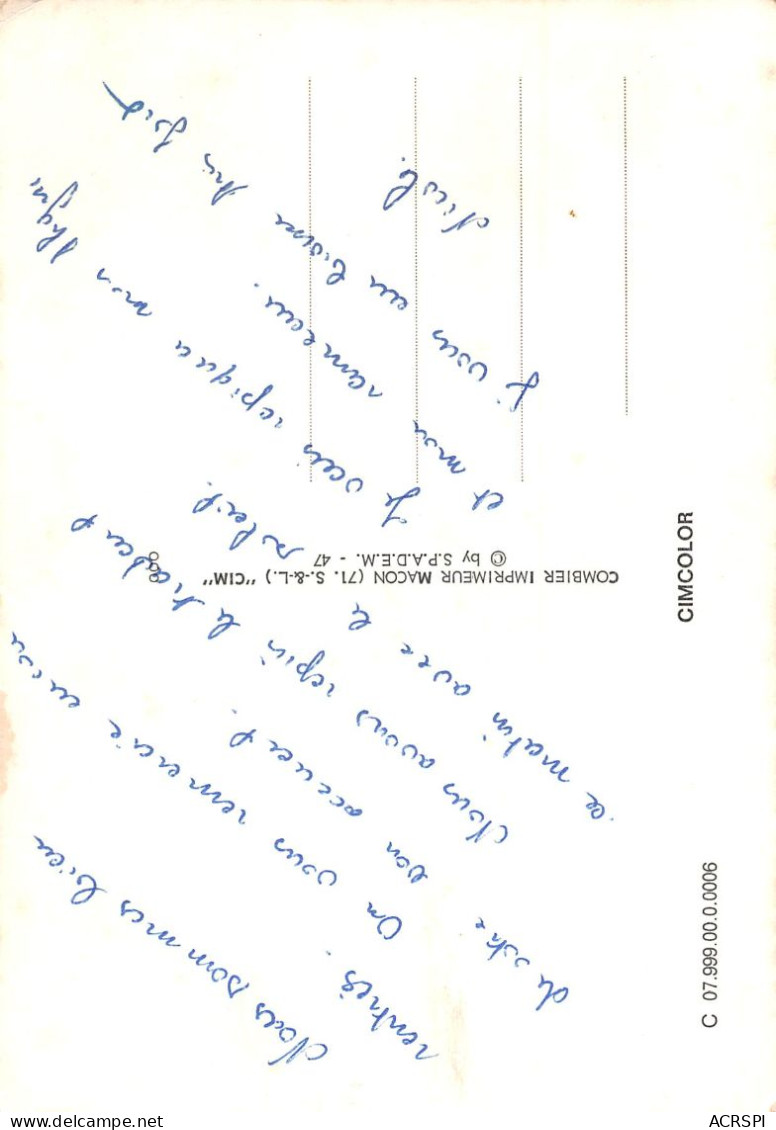 Nous sommes bien
rentrés. On vous remercie encore
de votre bon accueil.
Nous avons repris le travail
ce matin avec le soleil.
Je vais repiquer mon thym
et mon romarin.
Je vous embrasse très fort
Nicole.
COMBIER IMPRIMEUR MACON (71. S.-&-L.) "CIM"
© by S.P.A.D.E.M. - 47
CIMCOLOR
C 07.999.00.0.0006
delcampe.net
ACRSPI